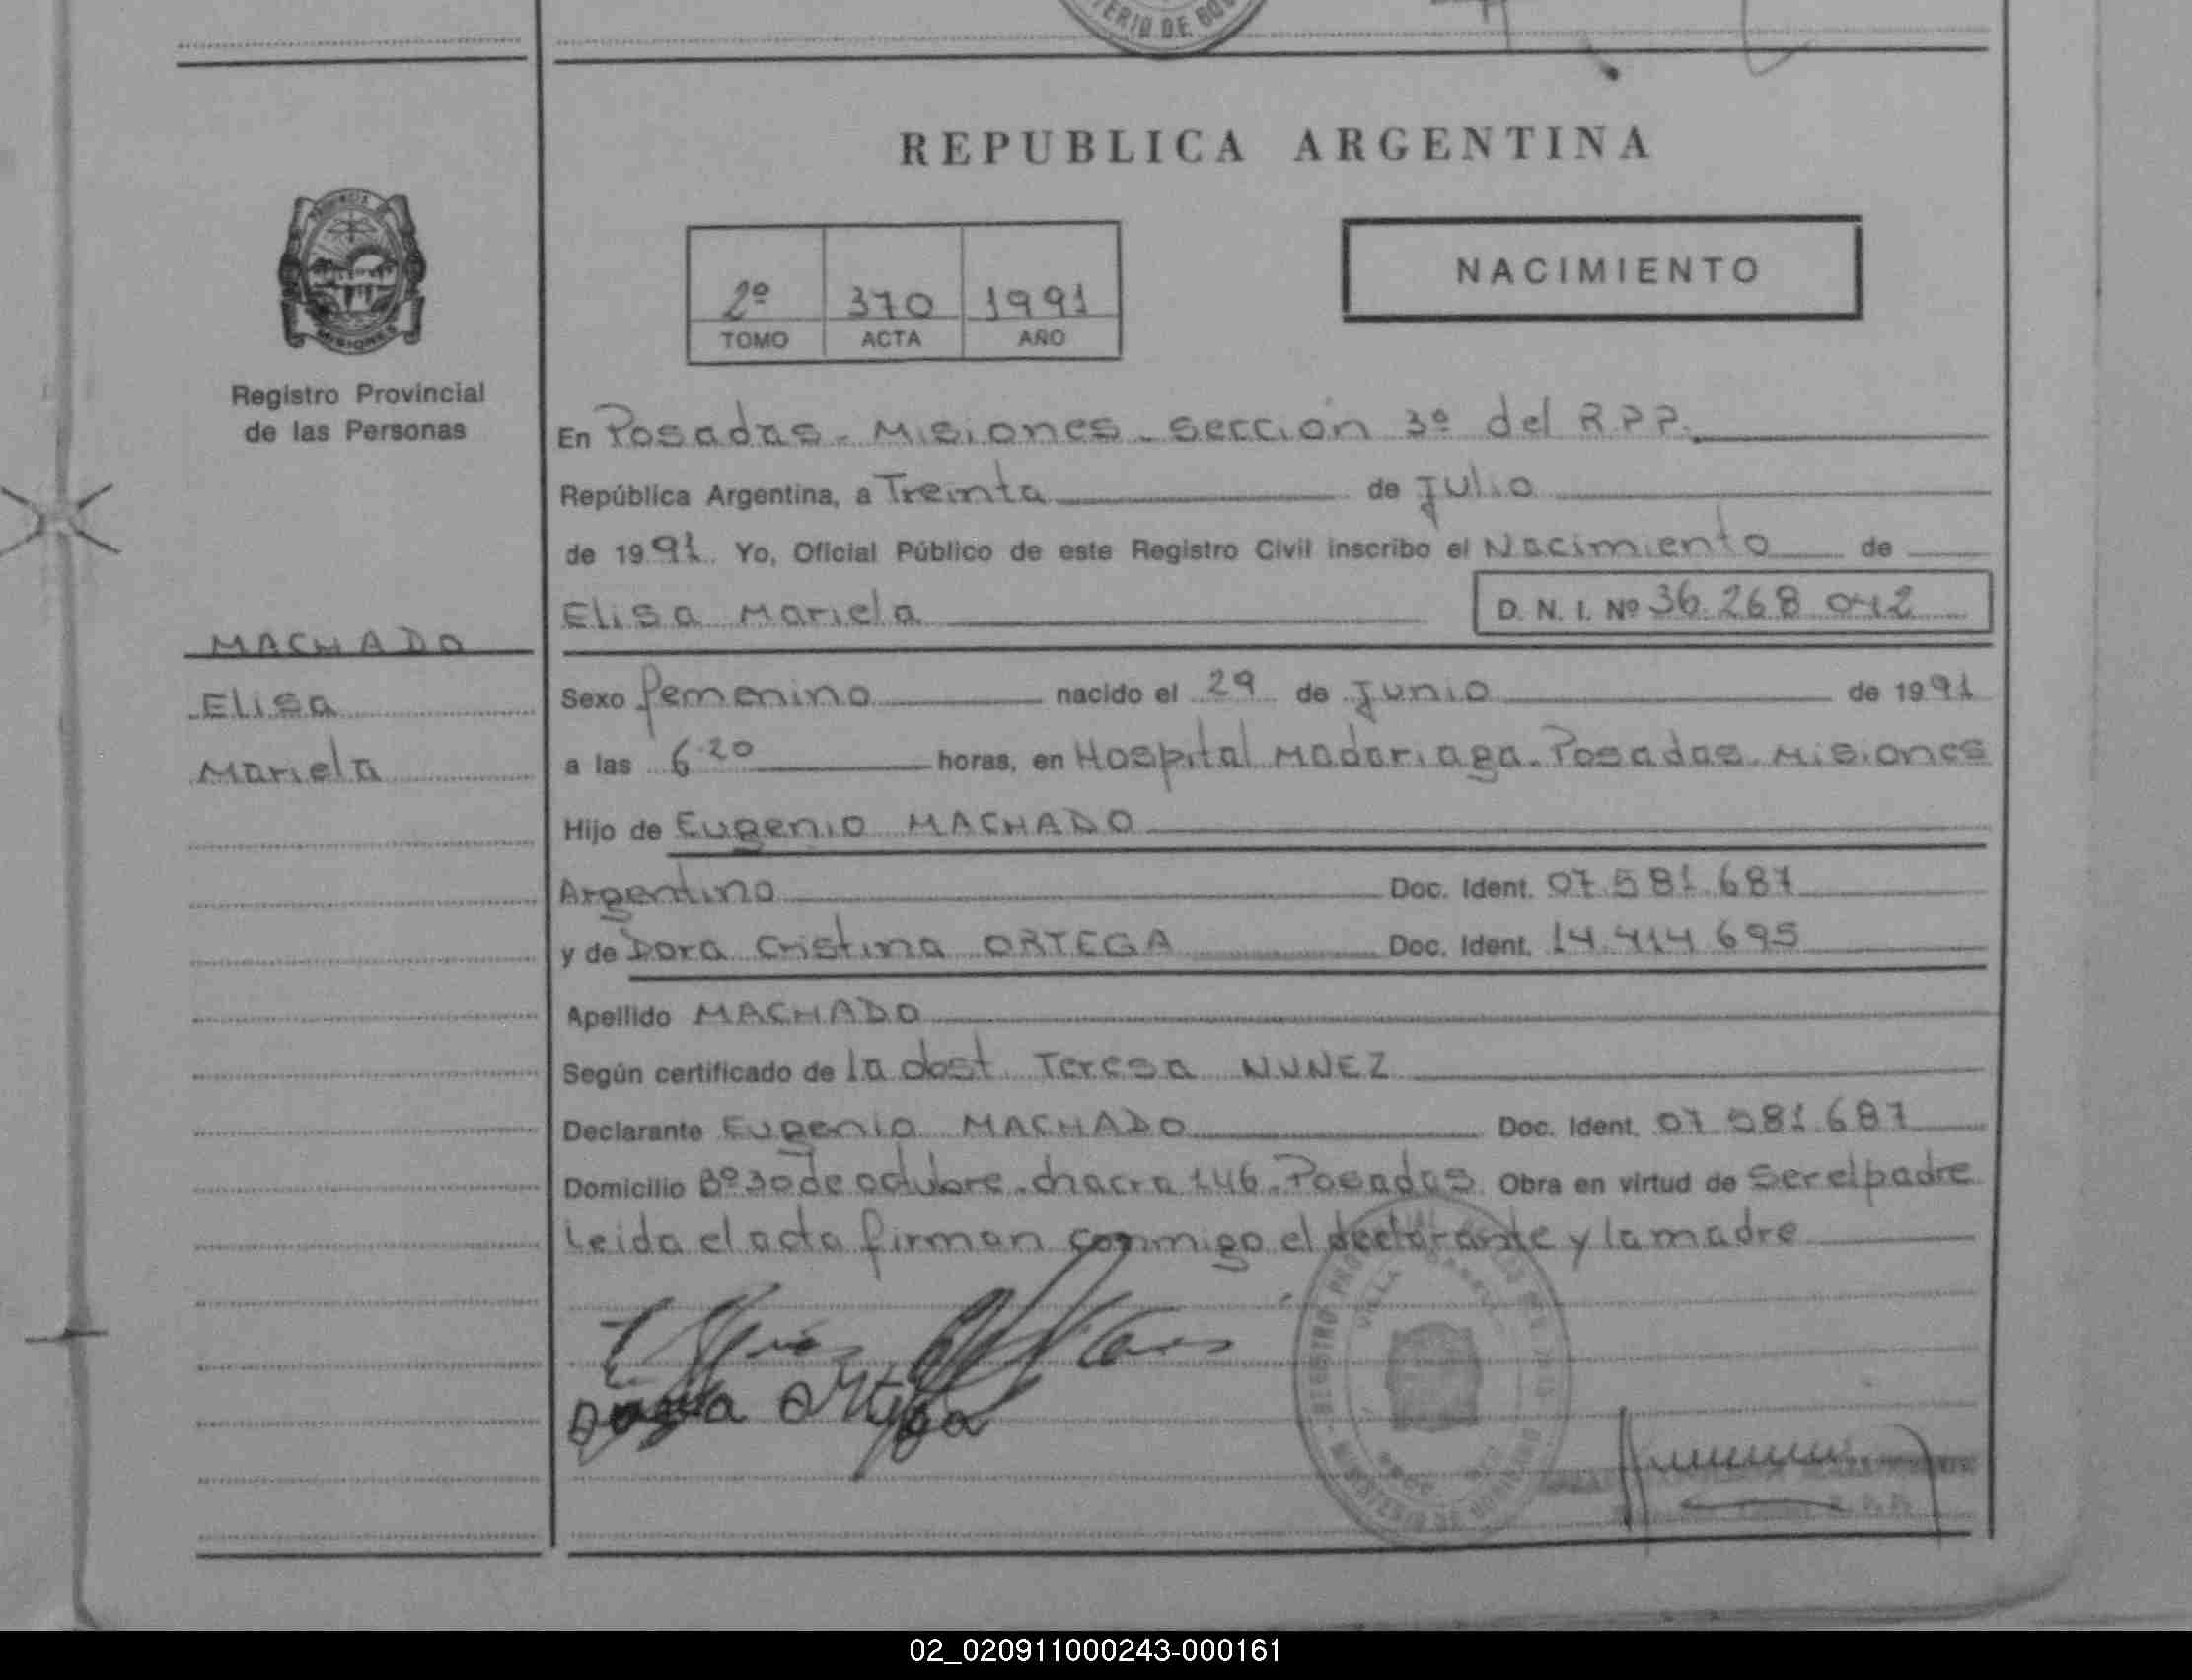 TERIO DE GOB
REPUBLICA ARGENTINA
PROVINCIA DE
MISIONES
Registro Provincial
de las Personas
2º 370 1991
TOMO ACTA AÑO
NACIMIENTO
En Posadas - Misiones - sección 3º del R.P.P.
República Argentina, a Treinta de Julio
de 1991 Yo, Oficial Público de este Registro Civil inscribo el Nacimiento de
Elisa Mariela D. N. I. Nº 36.268.042
MACHADO
Elisa
Mariela
Sexo femenino nacido el 29 de Junio de 1991
a las 6.20 horas, en Hospital Madariaga. Posadas. Misiones
Hijo de Eugenio MACHADO
Argentino Doc. Ident. 07.581.687
y de Dora Cristina ORTEGA Doc. Ident. 14.414.695
Apellido MACHADO
Según certificado de la obst. Teresa NUNEZ
Declarante Eugenio MACHADO Doc. Ident. 07.581.687
Domicilio Bº 30 de octubre. chacra 146. Posadas Obra en virtud de ser el padre
Leida el acta firman conmigo el declarante y la madre
Ortega
REGISTRO
VILLA
MINISTERIO DE GOBIERNO
02_020911000243-000161